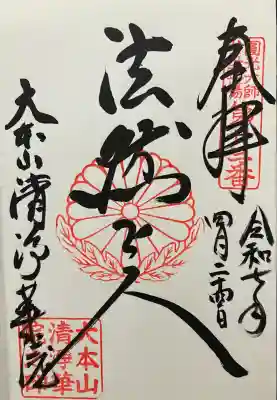 圓光大師
奉拝
令和七年
四月二十四日
法然上人
大本山清浄華院
大本山
清浄華